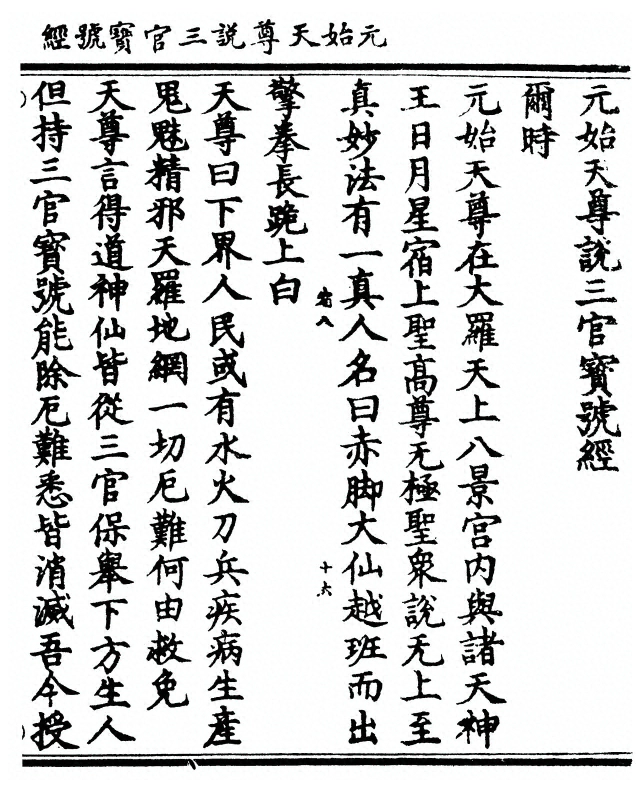 元始天尊說三官寳號經
元始天尊說三官寳號經
爾時
元始天尊在大羅天上八景宫内與諸天神
王日月星宿上聖髙尊无極聖衆說无上至
真妙法有一真人名曰赤脚大仙越班而出
宿八
十六
擎拳長跪上白
天尊曰下界人民或有水火刀兵疾病生産
鬼魅精邪天羅地網一切厄難何由救免
天尊言得道神仙皆從三官保舉下方生人
但持三官寳號能除厄難悉皆消滅吾今授